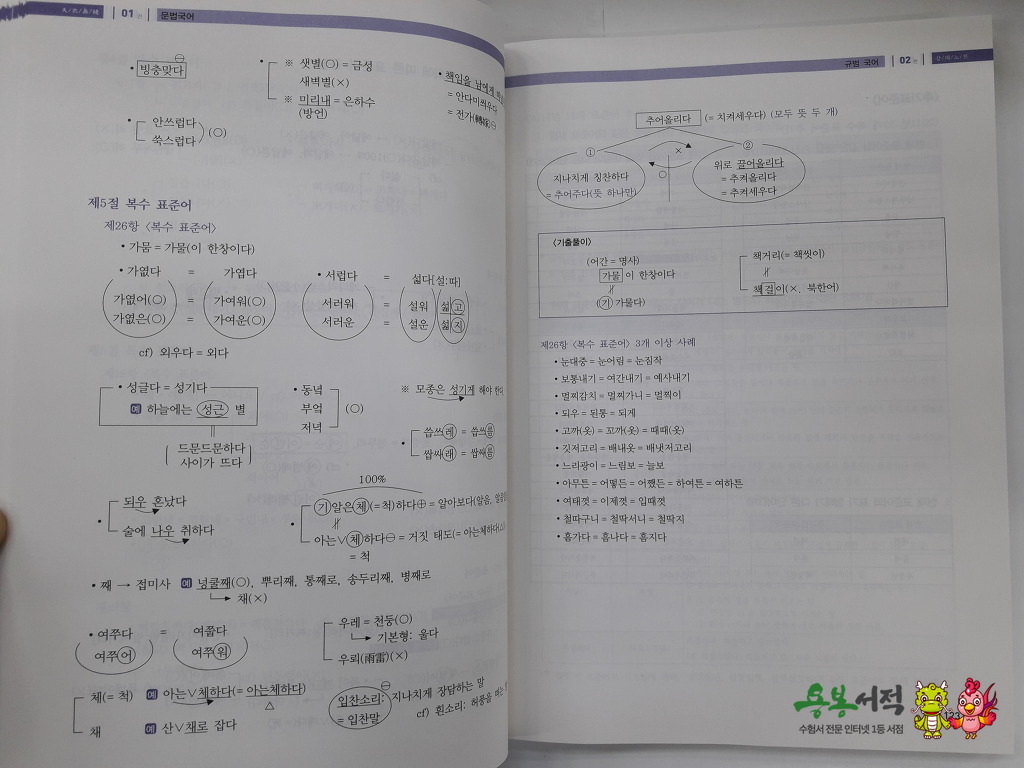 01
문법국어
• 빙충맞다 ⊖
• ※ 샛별(○) = 금성
새벽별(×)
※ 미리내 = 은하수
(방언)
• 책임을 남에게
= 안다미씌우다
= 전가(轉嫁)⊖
• 안쓰럽다
쑥스럽다 (○)
제5절 복수 표준어
제26항 〈복수 표준어〉
• 가뭄 = 가물(이 한창이다)
• 가엾다 = 가엽다
가엾어(○) = 가여워(○)
가엾은(○) = 가여운(○)
• 서럽다 = 섧다[설:따]
서러워 = 설워 섧고
서러운 = 설운 섧지
cf) 외우다 = 외다
• 성글다 = 성기다
예 하늘에는 성근 별
드문드문하다
사이가 뜨다
• 동녘
부엌
저녁 (○)
※ 모종은 성기게 해야 한다
• 씁쓰레 = 씁쓰름
쌉싸래 = 쌉싸름
• 되우 혼났다
술에 나우 취하다
100%
• 기 알은체(=척)하다⊕ = 알아보다(알음,
아는∨체하다⊖ = 거짓 태도(= 아는체하다
= 척
• 째 → 접미사 예 넝쿨째(○), 뿌리째, 통째로, 송두리째, 병째로
채(×)
• 여쭈다 = 여쭙다
여쭈어 여쭈워
우레 = 천둥(○)
기본형: 울다
우뢰(雨雷)(×)
체(= 척) 예 아는∨체하다(= 아는체하다)
△
채 예 산∨채로 잡다
입찬소리: 지나치게 장담하는 말 ⊖
= 입찬말 cf) 흰소리: 허풍을
규범 국어
02
추어올리다 (= 치켜세우다) (모두 뜻 두 개)
①
지나치게 칭찬하다
= 추어주다(뜻 하나만)
×
○
②
위로 끌어올리다
= 추켜올리다
= 추켜세우다
〈기출풀이〉
(어간 = 명사)
가물 이 한창이다
(기) 가물다)
책거리(= 책씻이)
책걸이(×, 북한어)
제26항 〈복수 표준어〉 3개 이상 사례
• 눈대중 = 눈어림 = 눈짐작
• 보통내기 = 여간내기 = 예사내기
• 멀찌감치 = 멀찌가니 = 멀찍이
• 되우 = 된통 = 되게
• 고까(옷) = 꼬까(옷) = 때때(옷)
• 깃저고리 = 배내옷 = 배냇저고리
• 느리광이 = 느림보 = 늘보
• 아무튼 = 어떻든 = 어쨌든 = 하여튼 = 여하튼
• 여태껏 = 이제껏 = 입때껏
• 철따구니 = 철딱서니 = 철딱지
• 흠가다 = 흠나다 = 흠지다
용봉서적
123
수험서 전문 인터넷 1등 서점